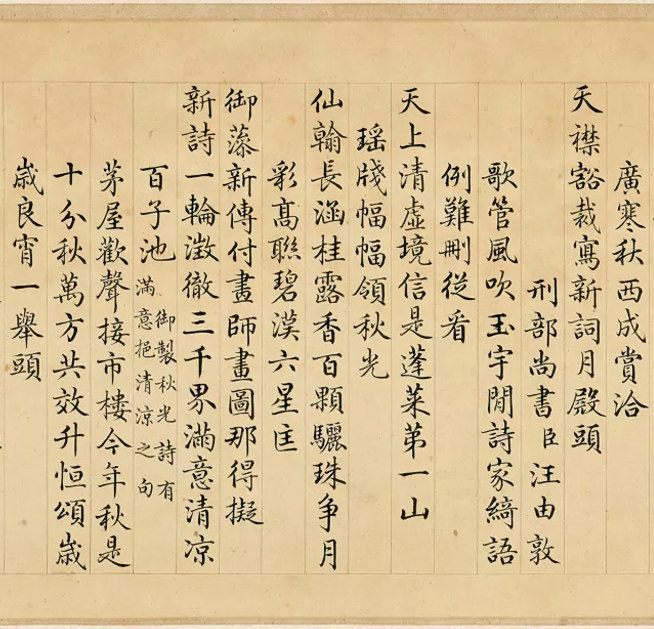 廣寒秋西成賞洽
天襟豁裁寫新詞月殿頭
刑部尚書臣汪由敦
歌管風吹玉宇閒詩家綺語
例難刪從看
天上清虛境信是蓬萊第一山
瑤牋幅幅領秋光
仙翰長涵桂露香百顆驪珠争月
彩髙聯碧漢六星匡
御藻新傳付畫師畫圖那得擬
新詩一輪澂徹三千界滿意清凉
百子池
御製秋光詩有
滿意挹清凉之句
茅屋歡聲接市樓今年秋是
十分秋萬方共效升恒頌歲
歲良宵一舉頭